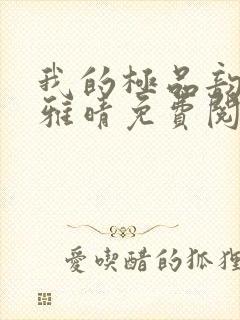 我的極品
雅晴免費閱
愛喫醋的狐狸